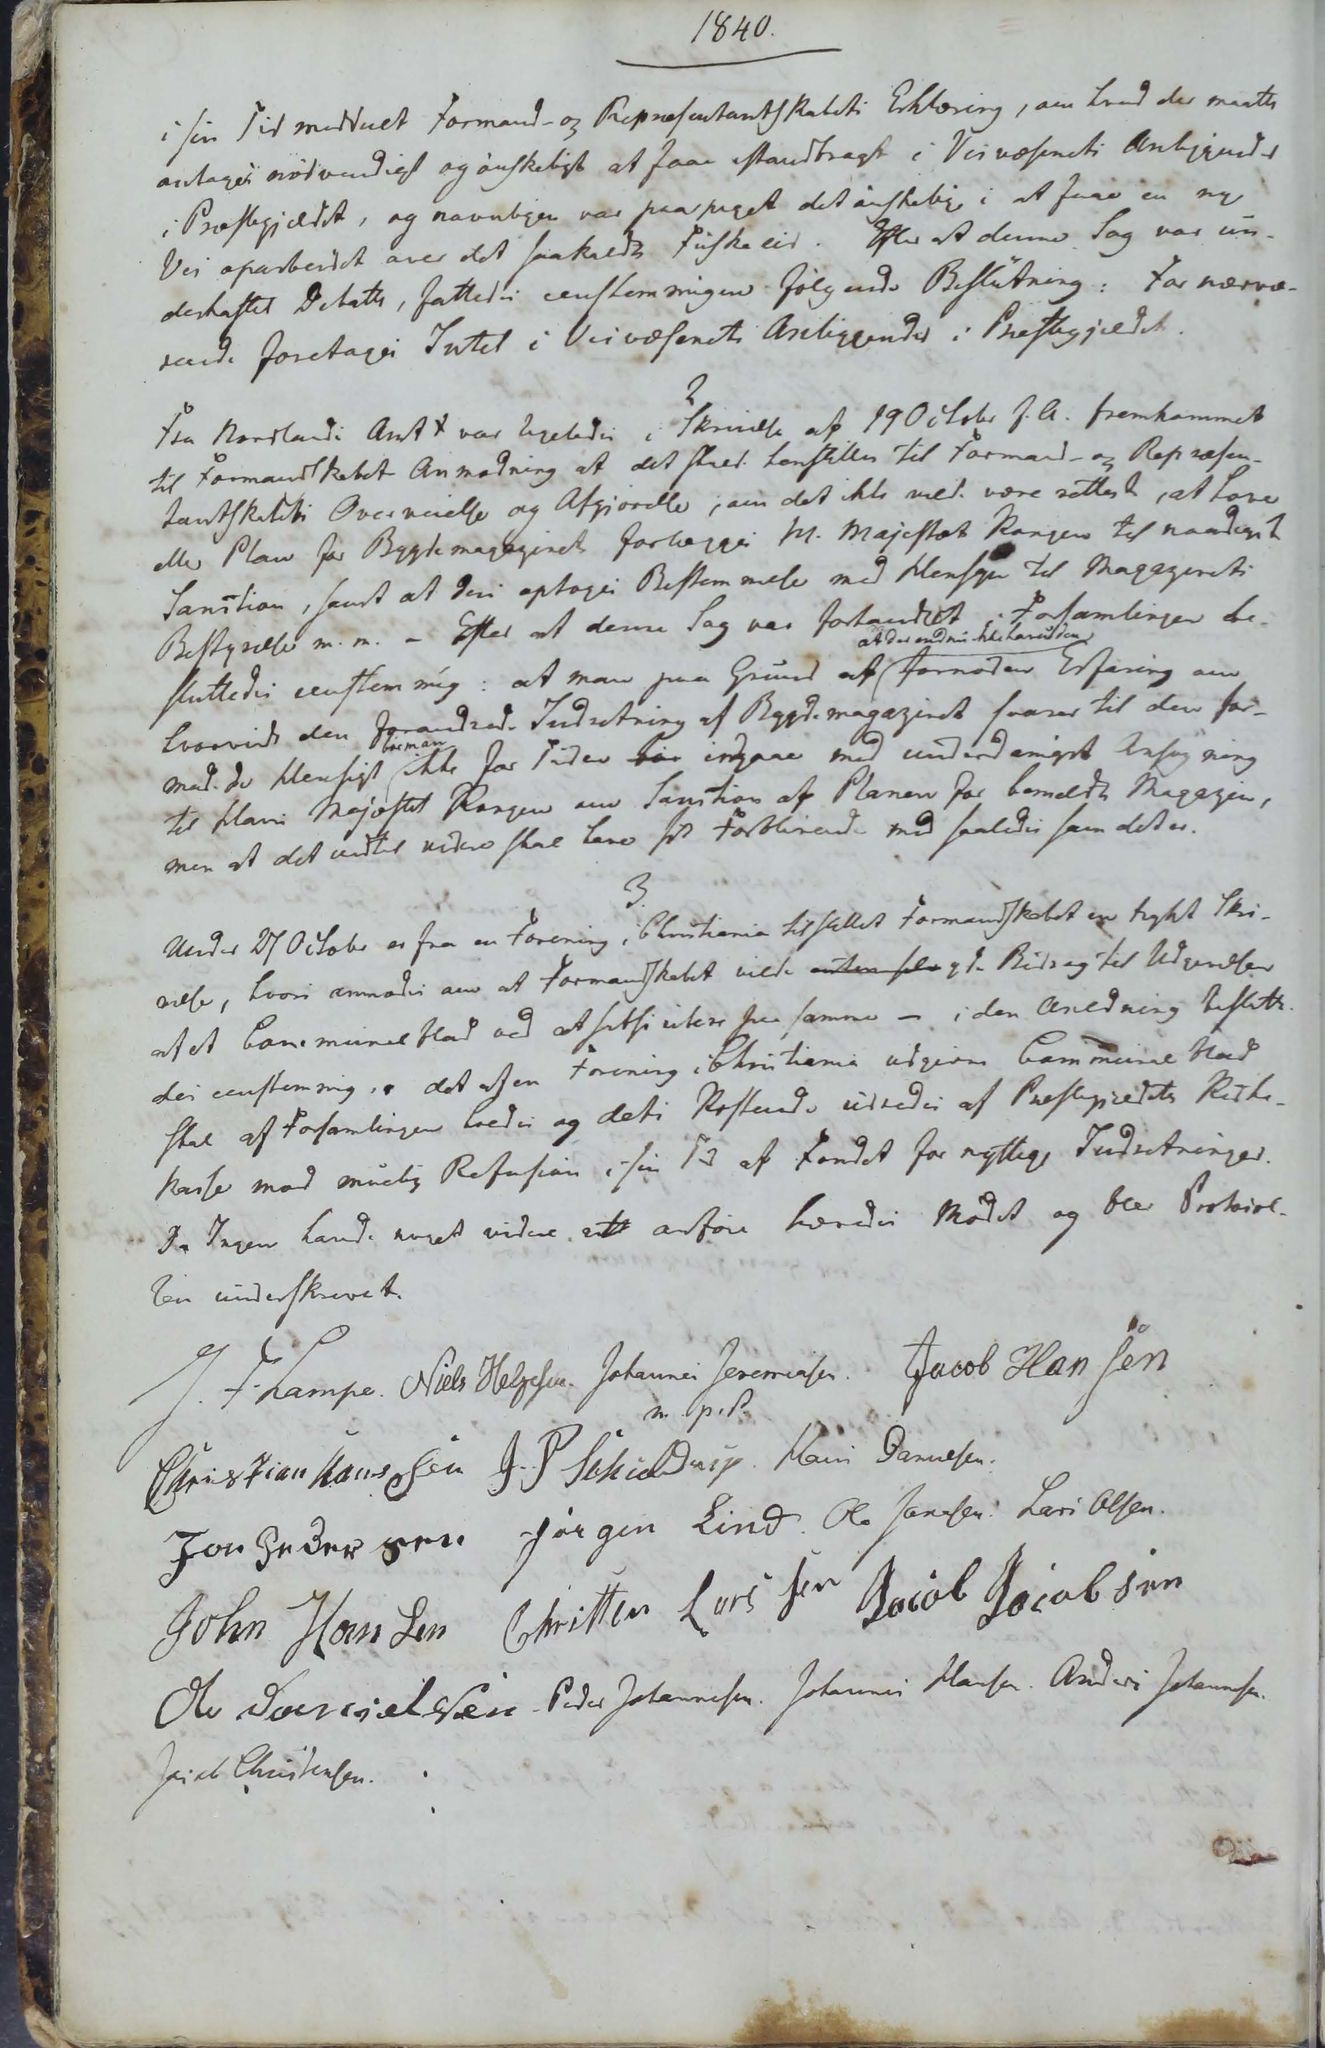 1840.
i sin Tid meddeelt Formand- og Repræsentantskabets Erklæring, om hvad der maatte
antages nödvendigt og önskeligt at faae istandbragt i Veivæsenets Anliggender
i Præstegjeldet, og navnligen var paapeget det önskelige i at faae en ny
Vei oparbeidet over det saakaldte Fiskeeid. Efter at denne Sag var un-
derkastet Debatte, fattedes eenstemmigen fölgende Beslutning: For nærvæ-
rende foretages Intet i Veivæsenets Anliggender i Præstegjeldet.
2
Fra Nordlands Amt var ligeledes i Skrivelse af 19 October f. A. fremkommet
til Formandskabet Anmodning at det skulde henstilles til Formand- og Repræsen-
tantskabets Overveielse og Afgjörelse, om det ikke vilde være rettest, at Love
eller Plan for Bygdemagazinet forlægges H. Majestæt Kongen til naadigst
Sanction, samt at deri optoges Bestemmelse med Hensyn til Magazinets
Bestyrelse m. m. - Efter at denne Sag var forhandlet, Forsamlingen be-
at der endnu ikke haves den
sluttedes eenstemmig: at man paa Grund af fornödne Erfaring om
hvorvidt den forandrede Indretning af Bygdemagazinet svarer til den for-
bör man
modede Hensigt ikke for Tiden bör indgaae med underdanigst Ansögning
til Hans Majestet Kongen om Sanction af Planen for bemeldte Magazin,
men at det indtil videre skal have sit Forblivende med saaledes som det er.
3.
Under 27 October er fra en Forening i Christiania tilstillet Formandskabet en trykt Skri-
velse, hvori anmodes om at Formandskabet vilde yde Bidrag til Udgivelsen
af et Communeblad ved at subscribere paa samme - i den Anledning beslutte-
des eenstemmig, det af en Forening i Christiania udgivne Communeblad
skal af Forsamlingen holdes og dets Kostende udredes af Præstegjeldets
kasse mod muelig Refusion i sin Tid af Fondet for nyttige Indretninger.
Da Ingen havde noget videre at anföre hævedes Mödet og blev Protocol-
len underskrevet.
J. F. Lampe. Niels Helgesen. Johannes Jeremiasen. Jacob Hansen
m. p. P.
Christian Hanssen J. P. Schielderup Hans Danielsen.
Jon Pedersen Jörgen Lind. Ole Jensen. Lars Olsen.
John Hansen Christten Larssen Jacob Jacobsen
Ole Danielsen Peder Johannesen. Johannes Hansen. Anders Johannesen.
Jacob Christensen.